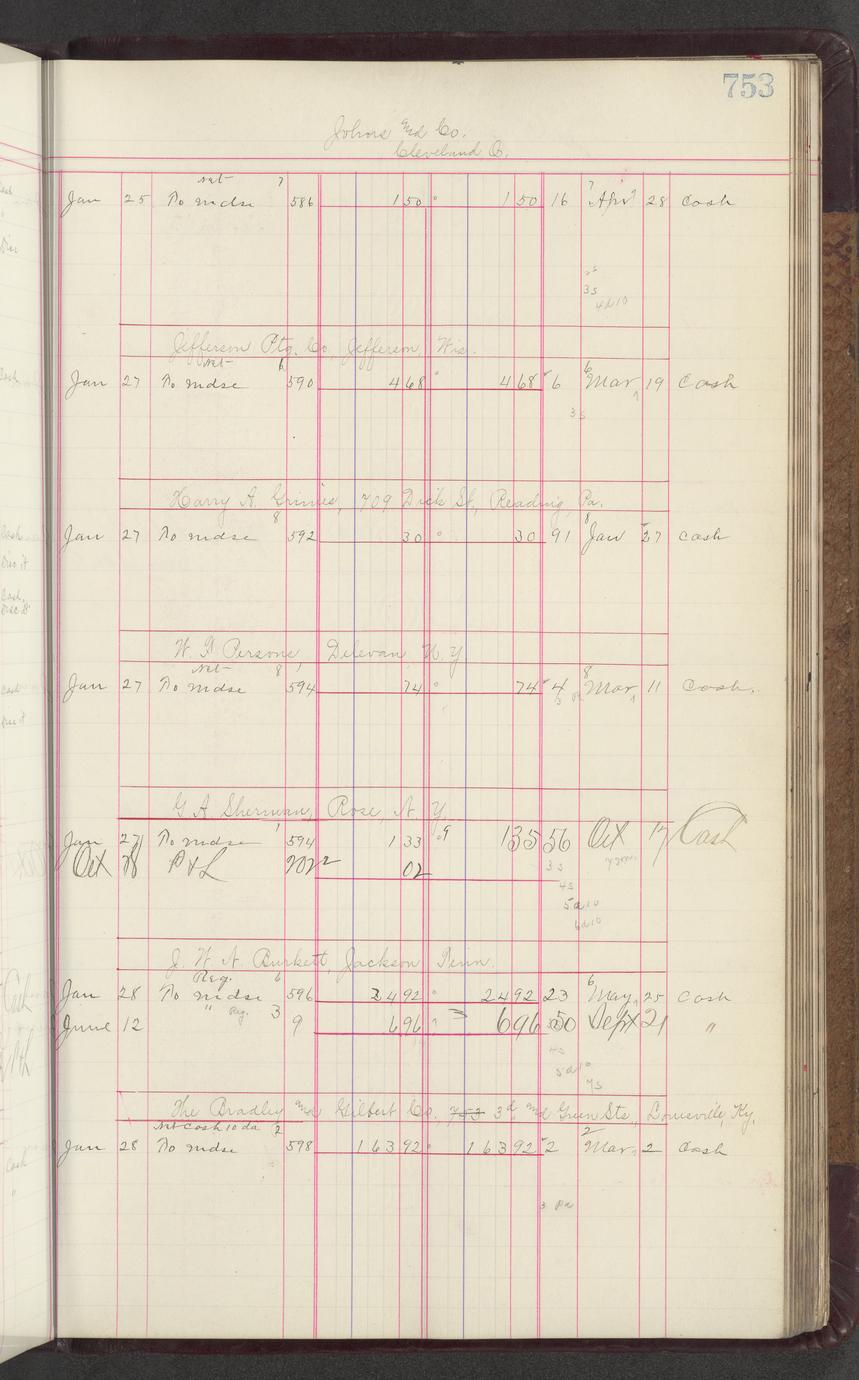 753
Johns and Co.
Cleveland O.
net 7 7
Jan 25 To mdse 586 1 50 1 50 16 Apr 28 Cash
3s
4d10
Jefferson Ptg. Co. Jefferson, Wis.
net 6 6
Jan 27 To mdse 590 4 68 4 68 6 Mar 19 Cash
3s
Harry A. Grimes, 709 Dick St., Reading, Pa.
8 8
Jan 27 To mdse 592 30 30 91 Jan 27 Cash
Delevan N.Y
net 8 8
Jan 27 To mdse 594 74 74 4 Mar 11 Cash.
G A Sherman, Rose, N.Y.
Jan 27 To mdse 594 1 33 135 56 Oct 17 Cash
Oct P & L 02
3s
4s
5d10
6d10
J. W. N. Burkett, Jackson Tenn.
Reg. 6 6
Jan 28 To mdse 596 2492 2492 23 May 25 Cash
June 12 " Reg. 3 9 696 696 50 Sept 21 "
4s
5d10
7s
The Bradley and Gilbert Co., 753 3d. and Green Sts., Louisville, Ky.
Net Cash 10 da 2 2
Jan 28 To mdse 598 1 63 92 1 63 92 2 Mar 2 Cash